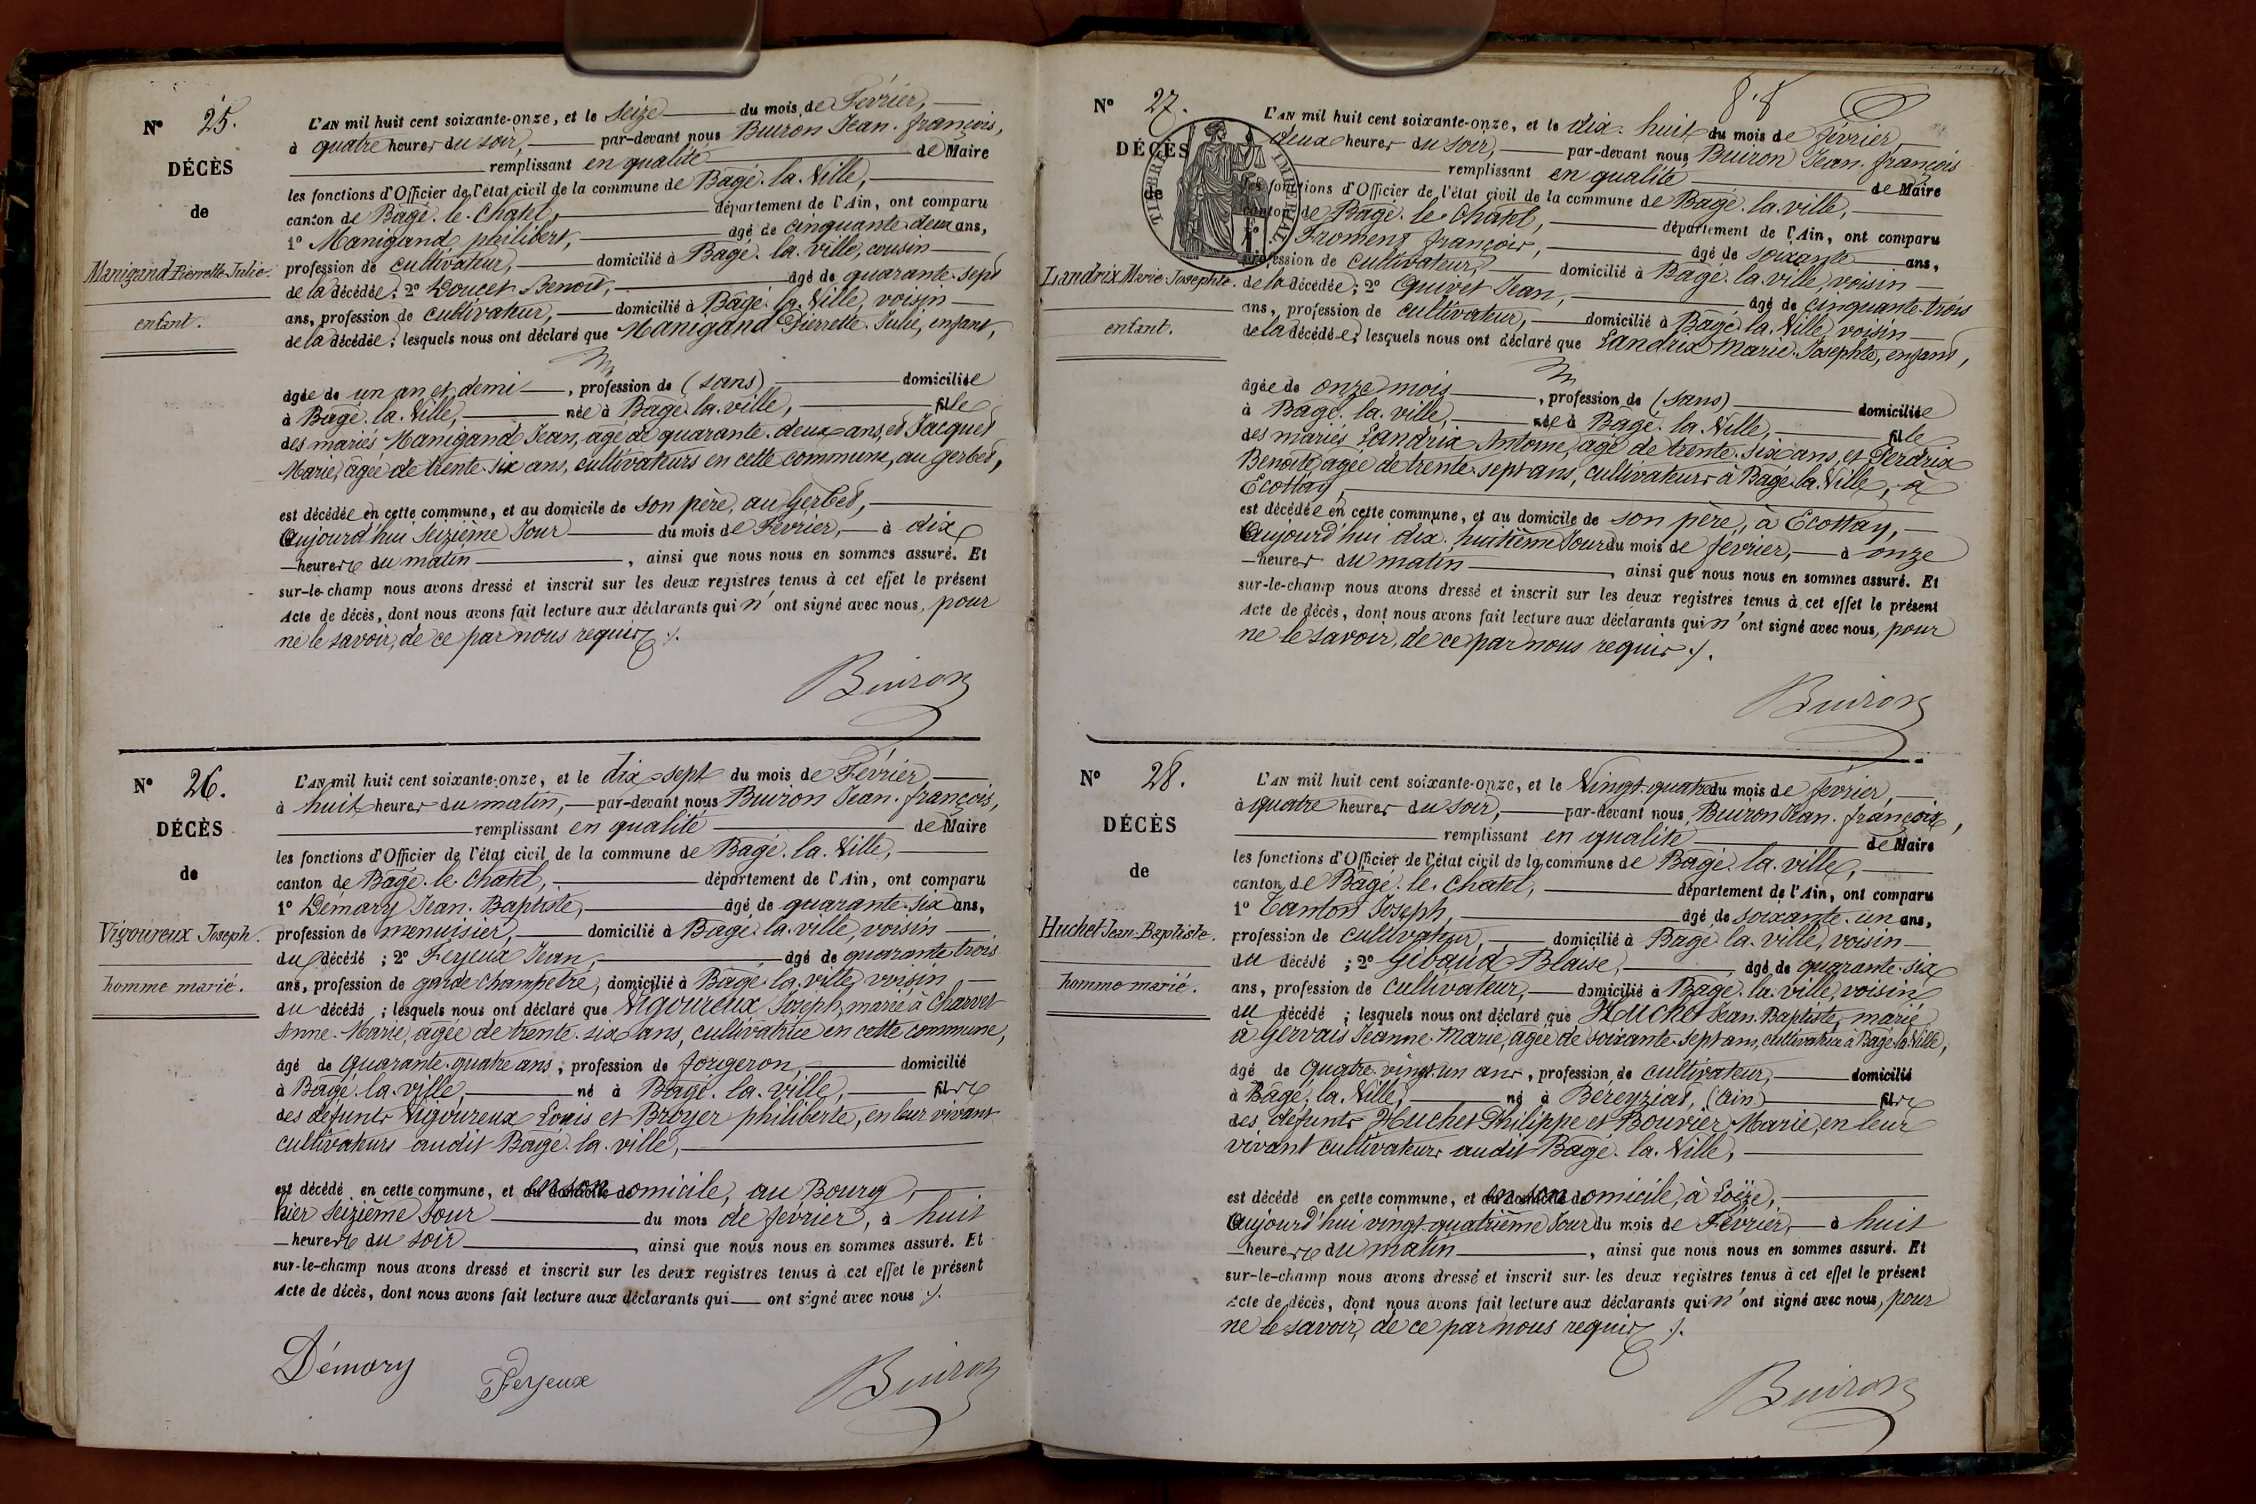 N° 25.
DÉCÈS
de
Manigand Pierrette Julie.
enfant.
L'AN mil huit cent soixante-onze, et le Seize du mois de Février,
à quatre heures du soir, par-devant nous Buiron Jean-françois,
remplissant en qualité de Maire
les fonctions d'Officier de l'état civil de la commune de Bâgé-la-Ville,
canton de Bâgé-le-Chatel, département de l'Ain, ont comparu
1° Manigand philibert, âgé de cinquante-deux ans,
profession de cultivateur, domicilié à Bagé-la-ville, cousin
de la décédée ; 2° Doucet Benoit, âgé de quarante-sept
ans, profession de cultivateur, domicilié à Bâgé-la-Ville, voisin
de la décédée ; lesquels nous ont déclaré que Manigand Pierrette-Julie, enfant,
âgée de un an et demi, profession de (sans) domiciliée
à Bâgé-la-Ville, née à Bâgé-la-ville, fille
des mariés Manigand Jean, agé de quarante-deux ans, et Jacquet
Marie, âgée de trente-six ans, cultivateurs en cette commune, au Gerbet,
est décédée en cette commune, et au domicile de son père, au Gerbet,
Aujourd'hui Seizième Jour du mois de Février, à dix
heures du matin, ainsi que nous nous en sommes assuré. Et
sur-le-champ nous avons dressé et inscrit sur les deux registres tenus à cet effet le présent
Acte de décès, dont nous avons fait lecture aux déclarants qui n'ont signé avec nous, pour
ne le savoir, de ce par nous requis ./.
Buiron
N° 26.
DÉCÈS
de
Vigoureux Joseph.
homme marié.
L'AN mil huit cent soixante-onze, et le dix-sept du mois de Février,
à huit heures du matin, par-devant nous Buiron Jean-françois,
remplissant en qualité de Maire
les fonctions d'Officier de l'état civil de la commune de Bagé-la-Ville,
canton de Bâgé-le-Chatel, département de l'Ain, ont comparu
1° Démary Jean-Baptiste, âgé de quarante-six ans,
profession de menuisier, domicilié à Bâgé-la-ville, voisin
du décédé ; 2° Feyeux Jean, âgé de quarante trois
ans, profession de garde champêtre, domicilié à Bâgé-la-ville, voisin
du décédé ; lesquels nous ont déclaré que Vigoureux Joseph, marié à Charvet
Anne-Marie, âgée de trente-six ans, cultivatrice en cette commune,
âgé de Quarante-quatre ans, profession de forgeron, domicilié
à Bâgé-la-ville, né à Bâgé-la-ville, fils
des défunts Vigoureux Louis et Broyer philiberte, en leur vivant
cultivateurs audit Bâgé-la-ville,
est décédé en cette commune, et en son domicile, au Bourg,
hier Seizième Jour du mois de février, à huit
heures du soir, ainsi que nous nous en sommes assuré. Et
sur-le-champ nous avons dressé et inscrit sur les deux registres tenus à cet effet le présent
Acte de décès, dont nous avons fait lecture aux déclarants qui ont signé avec nous ./.
Démary Feyeux Buiron
88
N° 27.
DÉCÈS
de
TIMBRE IMPÉRIAL
Landrix Marie Josephte.
enfant.
L'AN mil huit cent soixante-onze, et le dix-huit du mois de février,
deux heures du soir, par-devant nous Buiron Jean-françois
remplissant en qualité de Maire
les fonctions d'Officier de l'état civil de la commune de Bagé-la-ville,
canton de Bagé-le-Chatel, département de l'Ain, ont comparu
1° Froment françois, âgé de soixante ans,
profession de cultivateur, domicilié à Bagé-la-ville, voisin
de la décédée ; 2° Quivet Jean, âgé de cinquante-trois
ans, profession de cultivateur, domicilié à Bâgé-la-Ville, voisin
de la décédée ; lesquels nous ont déclaré que Landrix Marie-Josephte, enfant,
âgée de onze mois, profession de (sans) domiciliée
à Bagé-la-ville, née à Bâgé-la-Ville, fille
des mariés Landrix Antoine, agé de trente-six ans, et Perdrix
Benoîte, agée de trente-sept ans, cultivateurs à Bagé-la-Ville, à
Ecottay,
est décédée en cette commune, et au domicile de son père, à Ecottay,
Aujourd'hui dix-huitième Jour du mois de février, à onze
heures du matin, ainsi que nous nous en sommes assuré. Et
sur-le-champ nous avons dressé et inscrit sur les deux registres tenus à cet effet le présent
Acte de décès, dont nous avons fait lecture aux déclarants qui n'ont signé avec nous, pour
ne le savoir, de ce par nous requis ./.
Buiron
N° 28.
DÉCÈS
de
Huchet Jean-Baptiste.
homme marié.
L'AN mil huit cent soixante-onze, et le Vingt-quatre du mois de février,
à quatre heures du soir, par-devant nous Buiron Jean-françois,
remplissant en qualité de Maire
les fonctions d'Officier de l'état civil de la commune de Bâgé-la-ville,
canton de Bâgé-le-Chatel, département de l'Ain, ont comparu
1° Tanton Joseph, âgé de soixante-un ans,
profession de cultivateur, domicilié à Bagé-la-ville, voisin
du décédé ; 2° Gibaud Blaise, âgé de quarante-six
ans, profession de cultivateur, domicilié à Bagé-la-ville, voisin
du décédé ; lesquels nous ont déclaré que Huchet Jean-Baptiste, marié
à Gervais Jeanne-Marie, agée de soixante-sept ans, cultivatrice à Bagé-la-Ville,
âgé de Quatre-vingt-un ans, profession de cultivateur, domicilié
à Bâgé-la-Ville, né à Béréyziat, (Ain) fils
des défunts Huchet Philippe et Bouvier Marie, en leur
vivant cultivateurs audit Bagé-la-Ville,
est décédé en cette commune, et en son domicile, à Loëze,
Aujourd'hui vingt-quatrième Jour du mois de Février, à huit
heures du matin, ainsi que nous nous en sommes assuré. Et
sur-le-champ nous avons dressé et inscrit sur les deux registres tenus à cet effet le présent
Acte de décès, dont nous avons fait lecture aux déclarants qui n'ont signé avec nous, pour
ne le savoir, de ce par nous requis ./.
Buiron